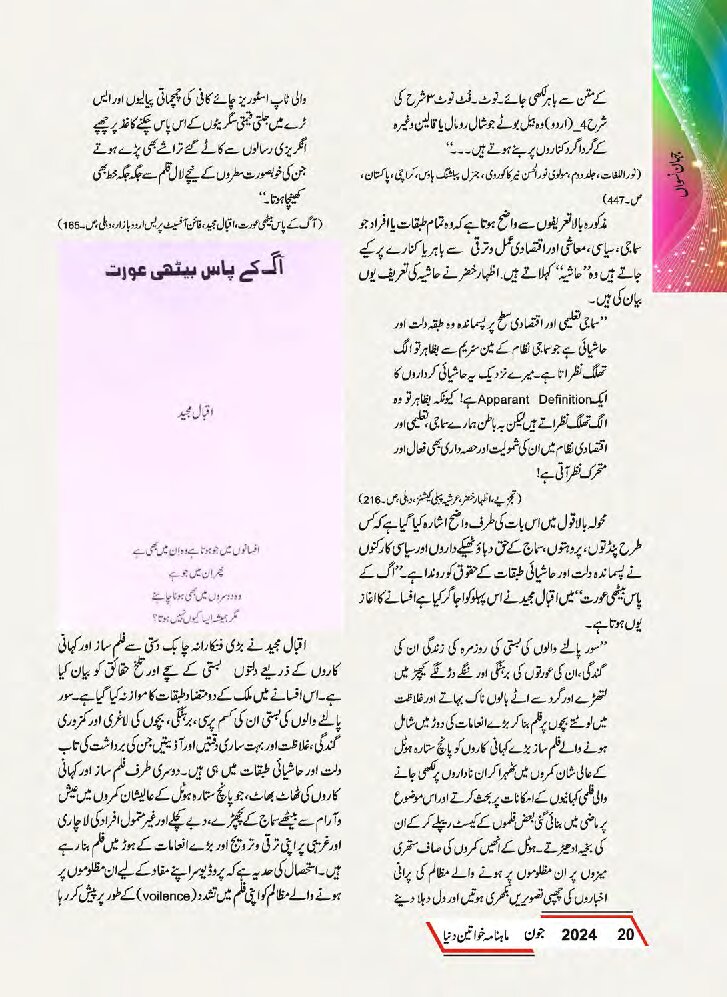 جہان نسواں
کے متن سے باہر لکھی جائے۔ نوٹ۔ فٹ نوٹ ۳ شرح کی
شرح 4_ (اردو) وہ بیل بوٹے جو شال رومال یا قالین وغیرہ
کے گردا گرد کناروں پر بنے ہوتے ہیں۔۔۔“
(نوراللغات، جلد دوم، مولوی نورالحسن نیر کاکوروی، جنرل پبلشنگ ہاؤس، کراچی، پاکستان،
ص۔447)
مذکورہ بالا تعریفوں سے واضح ہوتا ہے کہ وہ تمام طبقات یا افراد جو
سماجی، سیاسی، معاشی اور اقتصادی عمل و ترقی سے باہر یا کنارے پر کیے
جاتے ہیں وہ ”حاشیہ“ کہلاتے ہیں۔ اظہار خضر نے حاشیہ کی تعریف یوں
بیان کی ہیں۔
”سماجی تعلیمی اور اقتصادی سطح پر پسماندہ وہ طبقہ دلت اور
حاشیائی ہے جو سماجی نظام کے مین سٹریم سے بظاہر تو الگ
تھلگ نظر اتا ہے۔ میرے نزدیک یہ حاشیائی کرداروں کا
ایک Apparant Definition ہے! کیونکہ بظاہر تو وہ
الگ تھلگ نظر اتے ہیں لیکن بہ باطن ہمارے سماجی، تعلیمی اور
اقتصادی نظام میں ان کی شمولیت اور حصہ داری بھی فعال اور
متحرک نظر آتی ہے!
(تجزیے، اظہار خضر، عرشیہ پبلی کیشنز، دہلی، ص۔216)
محولہ بالا قول میں اس بات کی طرف واضح اشارہ کیا گیا ہے کہ کس
طرح پنڈتوں، پروہتوں، سماج کے حق دباؤ ٹھیکے داروں اور سیاسی کارکنوں
نے پسماندہ دلت اور حاشیائی طبقات کے حقوق کو روندا ہے۔ ”آگ کے
پاس بیٹھی عورت“ میں اقبال مجید نے اس پہلو کو اجاگر کیا ہے افسانے کا اغاز
یوں ہوتا ہے۔
”سور پالنے والوں کی بستی کی روزمرہ کی زندگی ان کی
گندگی، ان کی عورتوں کی برہنگی اور ننگے دڑنگے کیچڑ میں
لتھڑے اور گرد سے اٹے بالوں ناک بہاتے اور غلاظت
میں لوٹتے بچوں پر فلم بنا کر بڑے انعامات کی دوڑ میں شامل
ہونے والے فلم ساز بڑے کہانی کاروں کو پانچ ستارہ ہوٹل
کے عالی شان کمروں میں ٹھہرا کر ان ناداروں پر لکھی جانے
والی فلمی کہانیوں کے امکانات پر بحث کرتے اور اس موضوع
پر ماضی میں بنائی گئی بعض فلموں کے کیسٹ ریپلے کر کے ان
کی بخیہ ادھیڑتے۔ ہوٹل کے انھیں کمروں کی صاف ستھری
میزوں پر ان مظلوموں پر ہونے والے مظالم کی پرانی
اخباروں کی چھپی تصویریں بکھری ہوتیں اور دل دہلا دینے
والی ٹاپ اسٹوریز چائے کافی کی چمچماتی پیالیوں اور ایس
ٹرے میں جلتی قیمتی سگریٹوں کے اس پاس چکنے کاغذ پر چھپے
انگریزی رسالوں سے کاٹے گئے تراشے بھی پڑے ہوتے
جن کی خوبصورت سطروں کے نیچے لال قلم سے جگہ جگہ خط بھی
کھینچا ہوتا۔“
(آگ کے پاس بیٹھی عورت، اقبال مجید، فائن آفسیٹ پریس اردو بازار، دہلی، ص۔165)
آگ کے پاس بیٹھی عورت
اقبال مجید
افسانوں میں جو ہوتا ہے وہ ان میں بھی ہے
پھر ان میں جو ہے
وہ دوسروں میں بھی ہونا چاہئے
مگر ہمیشہ ایسا کیوں نہیں ہوتا؟
اقبال مجید نے بڑی فنکارانہ چابک دستی سے فلم ساز اور کہانی
کاروں کے ذریعے دلتوں بستی کے سچے اور تلخ حقائق کو بیان کیا
ہے۔ اس افسانے میں ملک کے دو متضاد طبقات کا موازنہ کیا گیا ہے۔ سور
پالنے والوں کی بستی ان کی کسم پرسی، برہنگی، بچوں کی لاغری اور کمزوری
گندگی، غلاظت اور بہت ساری دقتیں اور آذیتیں جن کی برداشت کی تاب
دلت اور حاشیائی طبقات میں ہی ہیں۔ دوسری طرف فلم ساز اور کہانی
کاروں کی ٹھاٹ بھاٹ، جو پانچ ستارہ ہوٹل کے عالیشان کمروں میں عیش
و آرام سے بیٹھے سماج کے پچھڑے، دبے کچلے اور غیر متمول افراد کی لاچاری
اور غریبی پر اپنی ترقی و ترویج اور بڑے انعامات کے ہوڑ میں فلم بنا رہے
ہیں۔ استحصال کی حد یہ ہے کہ پروڈیوسر اپنے مفاد کے لیے ان مظلوموں پر
ہونے والے مظالم کو اپنی فلم میں تشدد (voilence) کے طور پر پیش کر رہا
ماہنامہ خواتین دنیا جون 2024 20